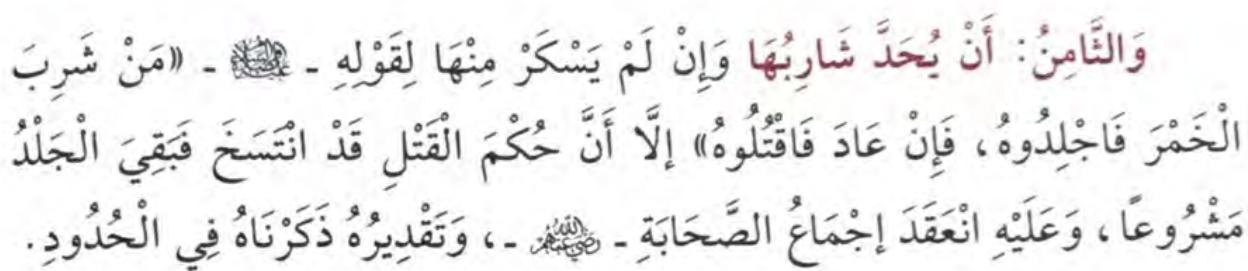 وَالثَّامِنُ: أَنْ يُحَدَّ شَارِبُهَا وَإِنْ لَمْ يَسْكَرْ مِنْهَا لِقَوْلِهِ ـ ﷺ ـ «مَنْ شَرِبَ
الْخَمْرَ فَاجْلِدُوهُ، فَإِنْ عَادَ فَاقْتُلُوهُ» إِلَّا أَنَّ حُكْمَ الْقَتْلِ قَدْ انْتَسَخَ فَبَقِيَ الْجَلْدُ
مَشْرُوعًا، وَعَلَيْهِ انْعَقَدَ إجْمَاعُ الصَّحَابَةِ ـ رضي الله عنهم ـ، وَتَقْدِيرُهُ ذَكَرْنَاهُ فِي الْحُدُودِ.